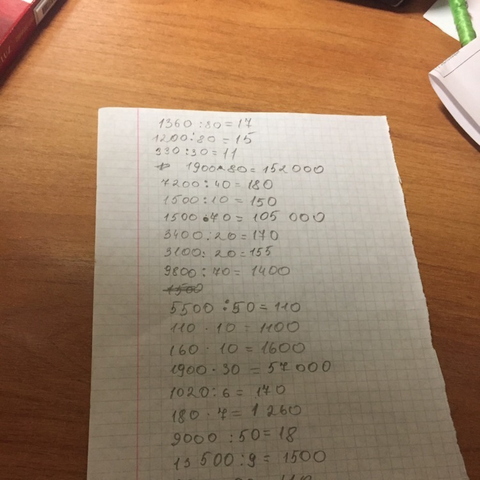 1360 : 80 = 17
1200 : 80 = 15
330 : 30 = 11
1900 · 80 = 152 000
7200 : 40 = 180
1500 : 10 = 150
1500 · 70 = 105 000
3400 : 20 = 170
3100 : 20 = 155
9800 : 70 = 1400
5500 : 50 = 110
110 · 10 = 1100
160 · 10 = 1600
1900 · 30 = 57 000
1020 : 6 = 170
180 · 7 = 1 260
9000 : 50 = 18
13 500 : 9 = 1500